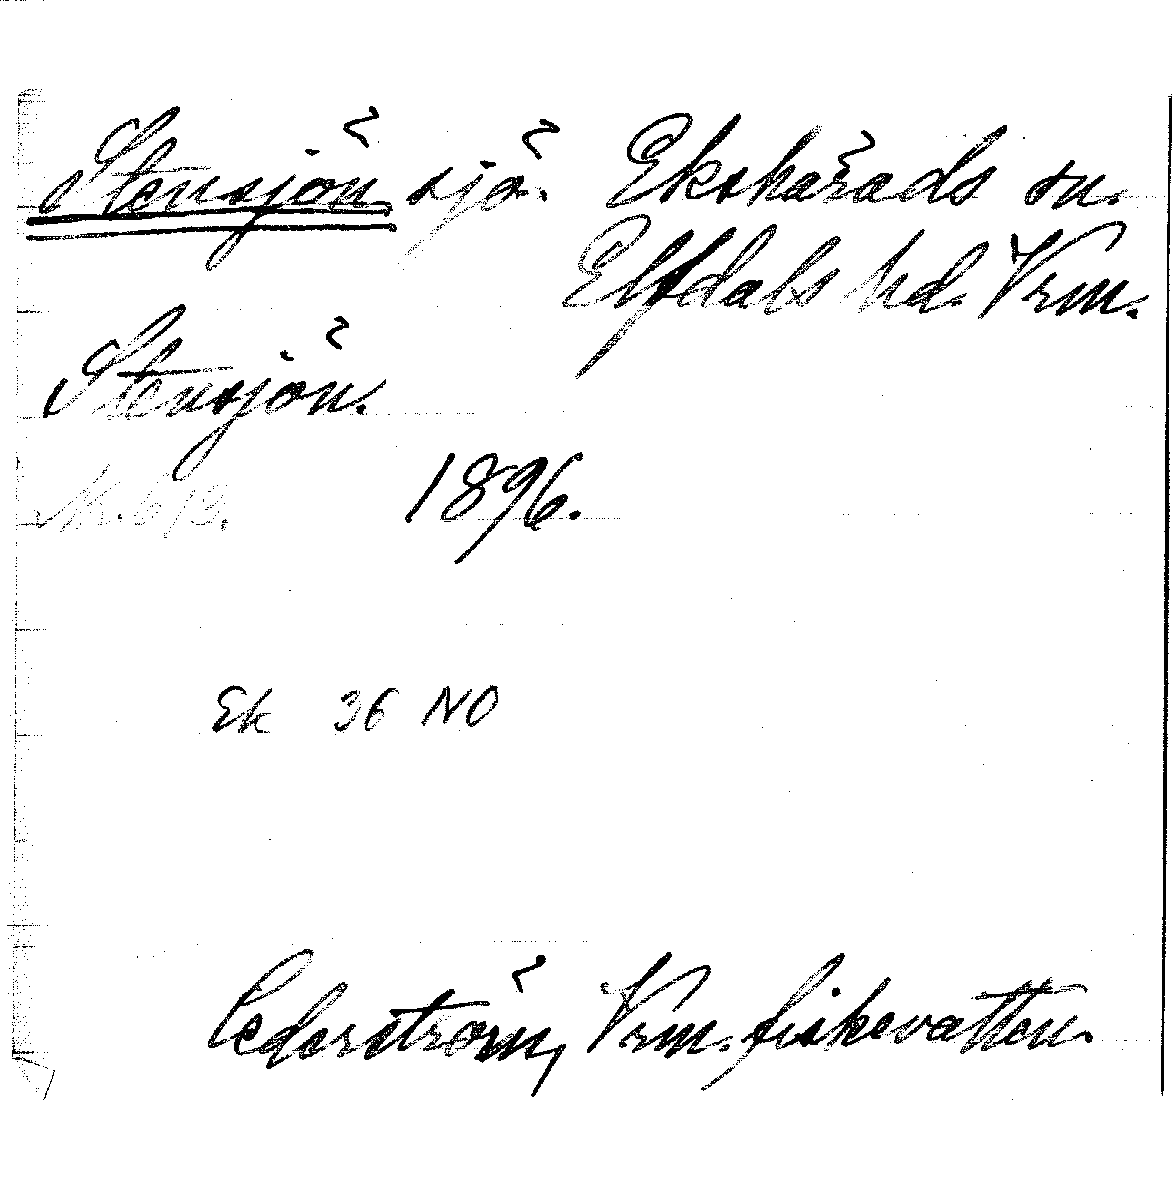 Stensjön sjö. Ekshärads sn.
Elfdals hd. Vrm.
Stensjön.
Nr. 613. 1896.
Ek 36 NO
Cederström, Vrm. fiskevatten.